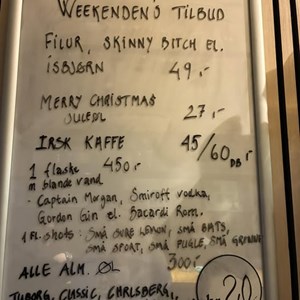 WEEKENDENS TILBUD
FILUR, SKINNY BITCH EL.
ISBJØRN 49,-
MERRY CHRISTMAS 27,-
JULEØL
IRSK KAFFE 45/60 DB,-
1 flaske 450,-
m blandevand
- Captain Morgan, Smiroff vodka,
Gordon Gin el. Bacardi Rom.
1 Fl. shots: SMÅ SURE LEMON, SMÅ BATS,
SMÅ SPORT, SMÅ FUGLE, SMÅ GRØNNE
300,-
ALLE ALM. ØL
TUBORG, CLASSIC, CARLSBERG, 20